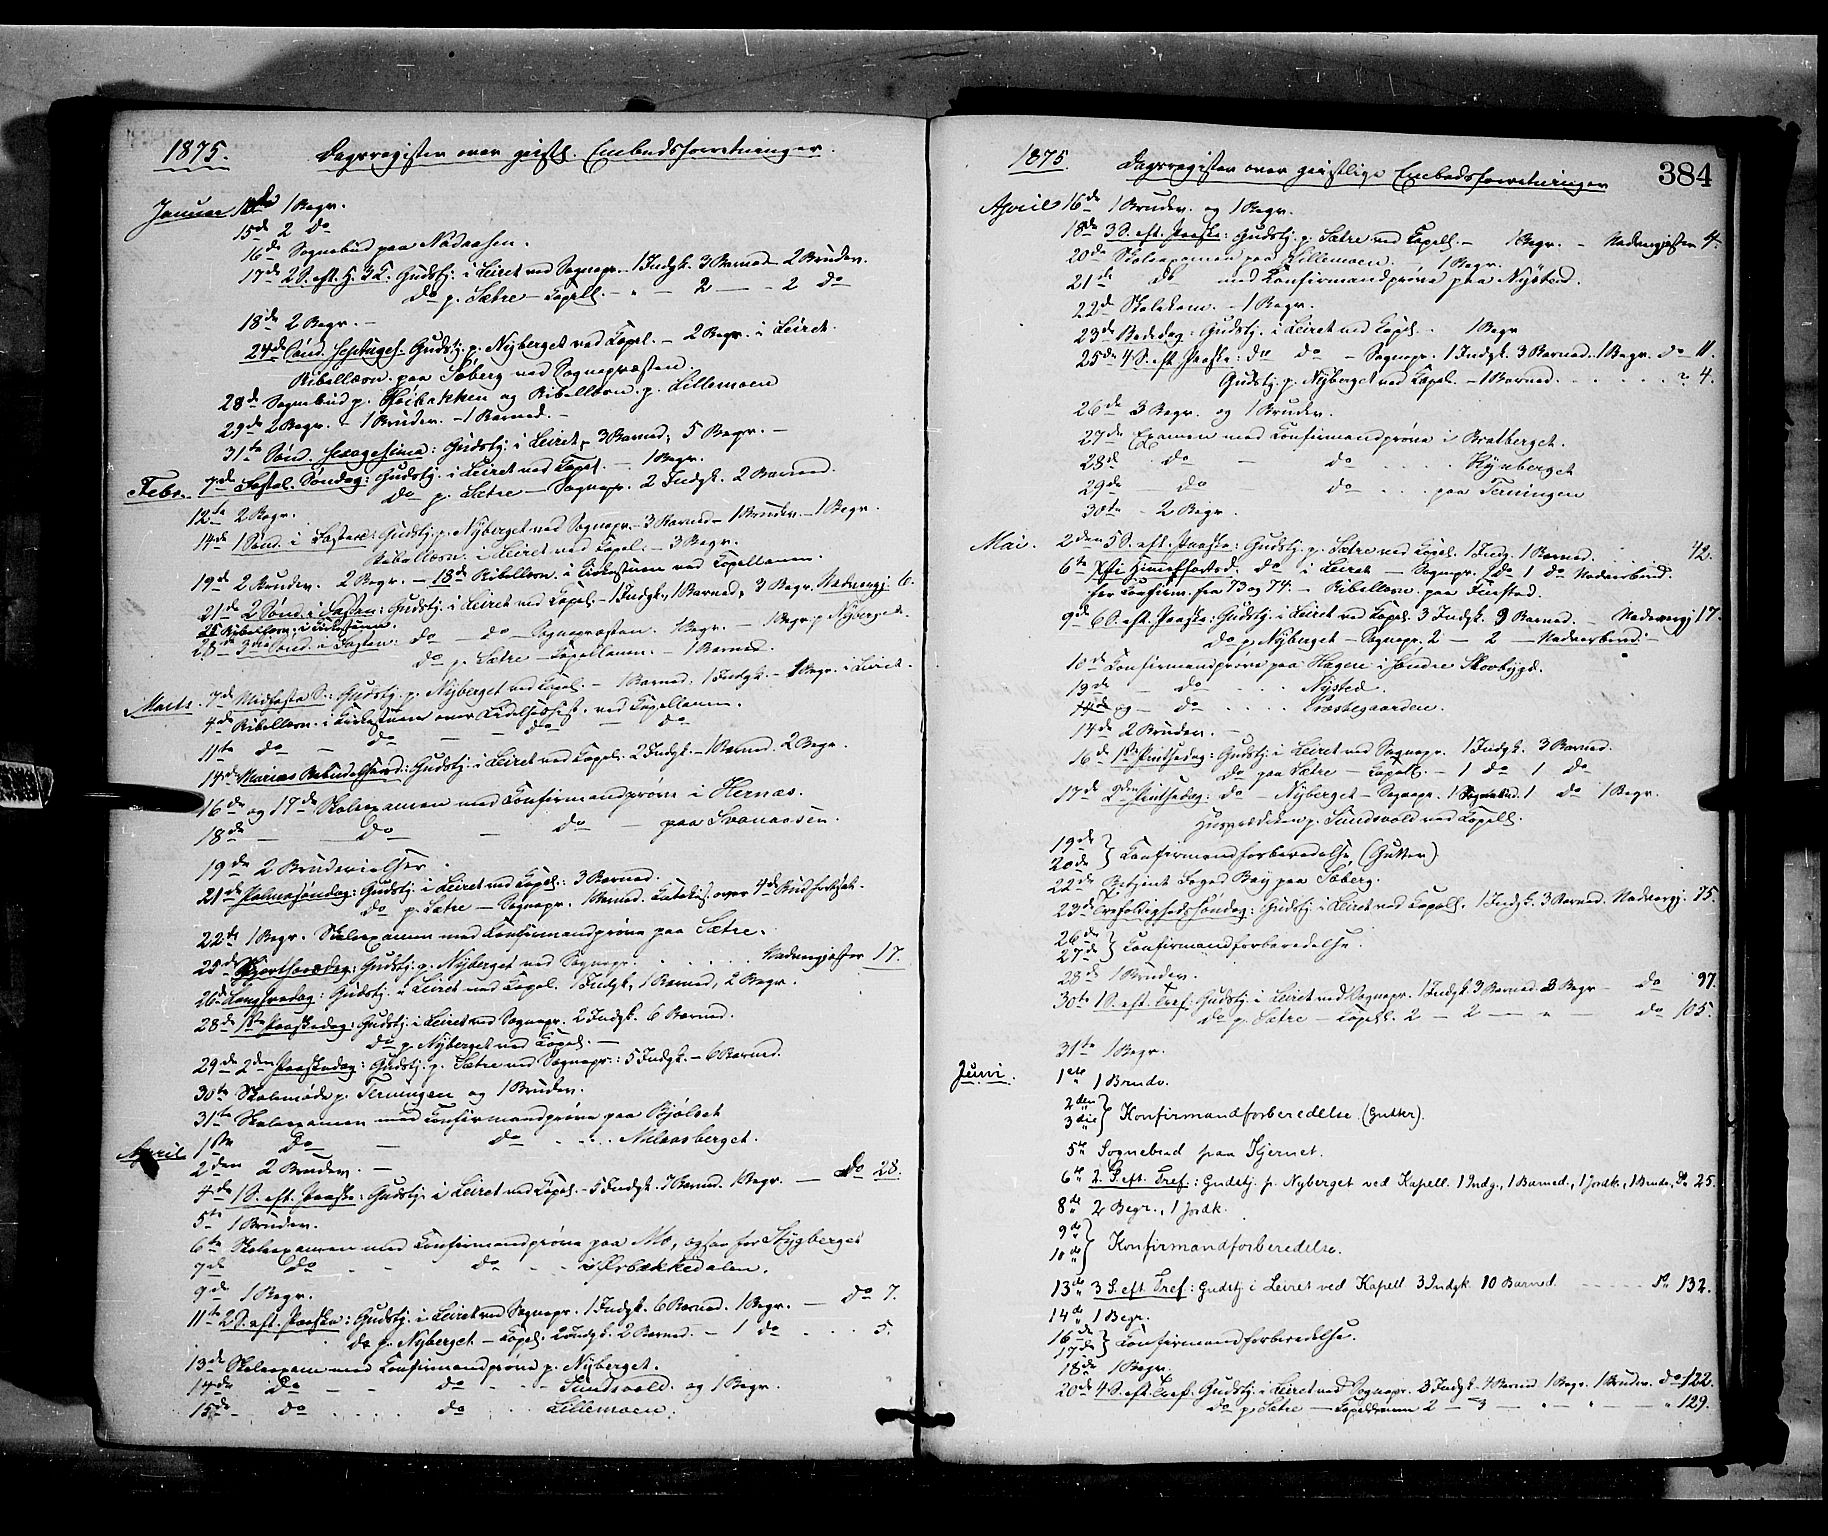 1875. Dagsregister over geistl. Embedsforretninger.
Januar 1 Begr.
15de 2 Do
16de Sognebud paa Nodaasen.
17de 2 S. eft. H. 3 K. Gudstj. i Leiret ved Sognepr. - 1 Indgk. 3 Barned. 2 Brudev.
Do p. Sætre - Kapell. - " - 2 - - 2 Do
18de 2 Begr. -
24de Sønd. Septuages. Gudstj. p. Nyberget ved Kapel. - 2 Begr. i Leiret.
Bibellæsn. paa Søberg ved Sognepræsten.
28de Sognebud p. og Bibellæsn. p. Lillemoen
29de 2 Begr. - 1 Brudev. - 1 Barned. -
31te Sønd. Sexagesima: Gudstj. i Leiret, 3 Barned, 5 Begr. -
Febr. 7de Fastel. Søndag: Gudstj. i Leiret ved Kapel. - 1 Begr.
Do p. Sætre - Sognepr. 2 Indgk. 2 Barned.
12te 2 Begr.
14de 1 Sønd. i Fasten: Gudstj. p. Nyberget ved Sognepr. - 3 Barned - 1 Brudev. - 1 Begr.
Bibellæsn. i Leiret ved Kapel. - 3 Begr.
19de 2 Brudev. 2 Begr. - 18de Bibellæsn. i Kirkestuen ved Kapellanen.
21de 2 Sønd. i Fasten: Gudstj. i Leiret ved Kapel. - 1 Indgk., 1 Barned, 3 Begr. Nadvergj 6.
25 Bibellæsn. i Kirkestuen.
28de 3die Sønd. i Fasten: do - do - Sognepræsten. 1 Begr. - 1 Begr. p. Nyberget.
Do p. Sætre - Kapellanen. - 1 Barned.
Marts. 7de Midfaste S.: Gudstj. p. Nyberget ved Kapel. - 1 Barned. 1 Indgk. - 1 Begr. i Leiret.
4de Bibellæsn. i Kirkestuen over Lidelseshist. ved Kapellanen.
11te do - do - - do - do
14de Marias Bebudelsesd: Gudstj. i Leiret ved Kapel. 2 Indgk. - 1 Barned. 2 Begr.
16de og 17de Skoleexamen med Konfirmandprøve i Hernæs.
18de - Do - do - paa Svenaasen.
19de 2 Brudevielser.
21de Palmesøndag: Gudstj. i Leiret ved Kapel.: 3 Barned.
do p. Sætre - Sognepr. 1 Barned. Katekis. over 4de Budfortsæt.
22de 1 Begr. Skoleexamen med Konfirmandprøve paa Sætre.
25de Skjærthorsdag: Gudstj. p. Nyberget ved Sognepr. . . . Nadvergjæster 17.
26de Langfredag: Gudstj. i Leiret ved Kapel. 1 Indgk, 1 Barned, 2 Begr.
28de 1ste Paaskedag: Gudstj. i Leiret ved Sognepr. 2 Indgk. 6 Barned.
do p. Nyberget ved Kapel. -
29de 2den Paaskedag: Gudstj. p. Sætre ved Sognepr.: 5 Indgk. - 6 Barned.
30te Skolemøde p. Terningen og 1 Brudev.
31te Skoleexamen med Konfirmandprøve paa Bjølset
April 1ste Do - do . . . . Melaasberget.
2den 2 Brudev. -
4de 1 S. eft. Paaske: Gudstj. i Leiret ved Kapel. - 5 Indgk. 7 Barned. 1 Begr. - Do 28.
5te 1 Brudev.
6te Skoleexamen med Konfirmandprøve paa Mo, ogsaa for Stygberget
7de Do . - do - - i Ørbækkedalen.
9de 1 Begr.
11te 2 S. eft. Paaske: Gudstj. i Leiret ved Sognepr. 1 Indgk. 6 Barned. 1 Begr. - Do 7.
do p. Nyberget - Kapel. 2 Indgk. 2 Barned. - 1 do . . . 5.
13de Skoleexam med Konfirmandprøve p. Nyberget.
14de Do - - do - - Sundsvold. og 1 Begr.
15de - do . . . . do . . Lillemoen.
1875. Dagsregister over geistlige Embedsforretninger 384
April 16de 1 Brudev. og 1 Begr.
18de 3 S. eft. Paaske: Gudstj. p. Sætre ved Kapell. - 1 Begr. - Nadvergjæster 4.
20de Skoleexamen paa Lillemoen. 1 Begr.
21de do med Konfirmandprøve paa Nysted.
22de Skolekom. - 1 Begr.
23de Bededag: Gudstj. i Leiret ved Kapel. . 1 Begr
25de 4 S. eft. Paaske: do do - Sognepr. 1 Indgk. 3 Barned. 1 Begr. do 11.
Gudstj. p. Nyberget ved Kapel. - 1 Barned. . . . . . " 4.
26de 3 Begr. og 1 Brudev.
27de Examen med Konfirmandprøve i Bratberget.
28de do - do . . . . Kynberget
29de - do do . . . paa Terningen
30te - 2 Begr.
Mai. 2den 5 S. eft. Paaske: Gudstj. p. Sætre ved Kapel. 1 Indg. 1 Barned. . . . 42.
6te Kti Himelfartsd. do i Leiret - Sognepr. 1 do 1 do Nadverbend.
for Konfirm. fra 73 og 74. - Bibellæsn. paa Finstad.
9de 6 S. eft. Paaske: Gudstj. i Leiret ved Kapel. 3 Indgk. 9 Barned. - Nadvergj 17.
do p. Nyberget - Sognepr. 2 - 2 - Nadverbend: -
10de Konfirmandprøve paa Hagen i søndre Skovbygd.
13de - do . . . . Nysted.
og - do . . . . Præstegaarden.
14de 2 Brudev. -
16de 1ste Pintsedag: Gudstj. i Leiret ved Sognepr. 1 Indgk. 3 Barned.
do paa Sætre - Kapell. - 1 do 1 do
17de 2den Pintsedag: do - Nyberget - Sognepr. 1 1 do 1 Begr.
Huspræken p. Sundsvold ved Kapell.
19de
20de } Konfirmandforberedelse (Gutter)
22de Betjent Baard Bay paa Søberg.
23de Trefoldigheds Søndag: Gudstj. i Leiret ved Kapell. 1 Indgk. 3 Barned. Nadvergj. 75.
26de
27de } Konfirmandforberedelse.
28de 1 Brudev.
30te 1 S. eft. Tref. Gudstj. i Leiret ved Sognepr. 1 Indgk. 3 Barned. 3 Begr - do 97.
do p. Sætre - Kapell. 2 - 2 - " - do 105.
31te 1 Begr.
Juni. 1ste 1 Brudv.
2den
3die } Konfirmandforberedelse. (Gutter).
5te Sognebud paa Kjernet.
6te 2. S. eft. Tref.: Gudstj. p. Nyberget ved Kapell. 1 Indg., 1 Barned., 1 Jordk., 1 Brudv. Do 25.
8de 2 Begr., 1 Jordk.
9de
10de } Konfirmandforberedelse.
13de 3 S. eft. Tref.: Gudstj. i Leiret ved Kapell 3 Indgk. 10 Barned. - - - - Do 132.
14de 1 Begr.
16de
17de } Konfirmandforberedelse.
18de 1 Begr.
20de 4 S. eft. Tref. Gudstj. i Leiret ved Sognepr. 3 Indgk. 4 Barned. 1 Begr. 1 Brudev. Do 122.
do p. Sætre - Kapellanen 2 - 3 - " - " - " 129.